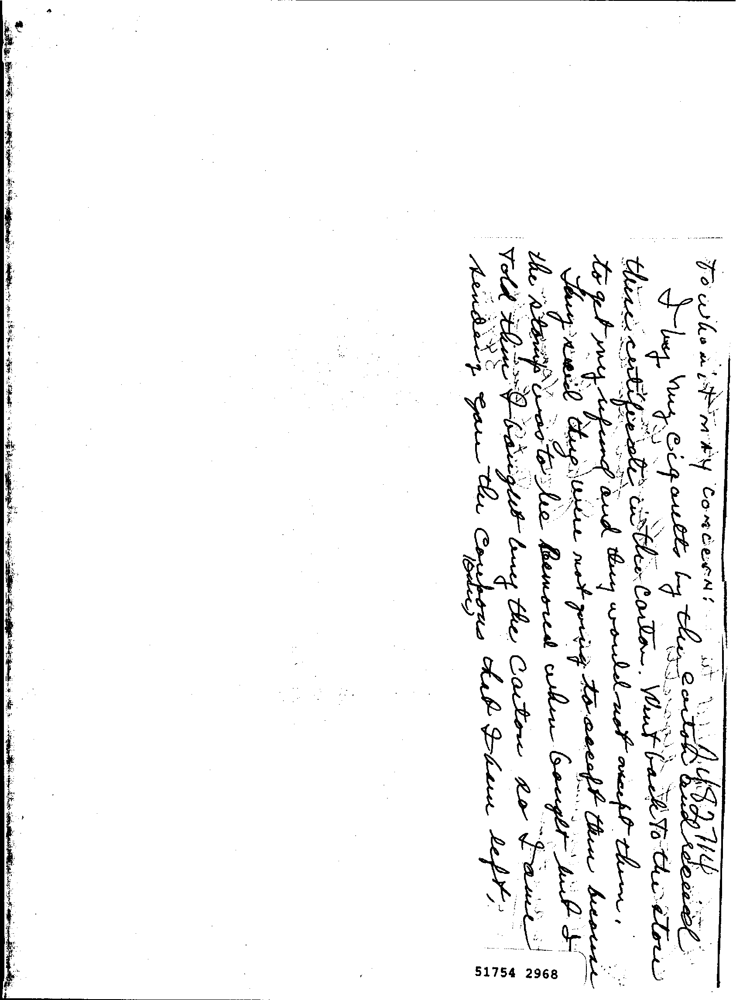 A482714
To whom it MAY CONCERN:
I buy my cigaretts by the carton and received
these certificate in the carton. Went back to the store
to get my refund and they would not accept them.
They said they were not going to accept them because
the stamp was to be Removed when bought but I
Told them I bought buy the Carton so I am
sending you the Coupons that I have left.
51754 2968